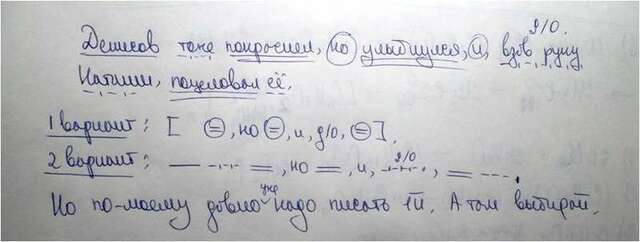 д/о.
Денисов тоже покраснел, но улыбнулся, и, взяв руку
Наташи, поцеловал её.
1 вариант: [ = , но = , и, д/о, = ].
2 вариант: — -.-.- = , но = , и, -.-.-.-, = ---.
д/о
уже
Но по-моему давно надо писать 1й. А там выбирай.